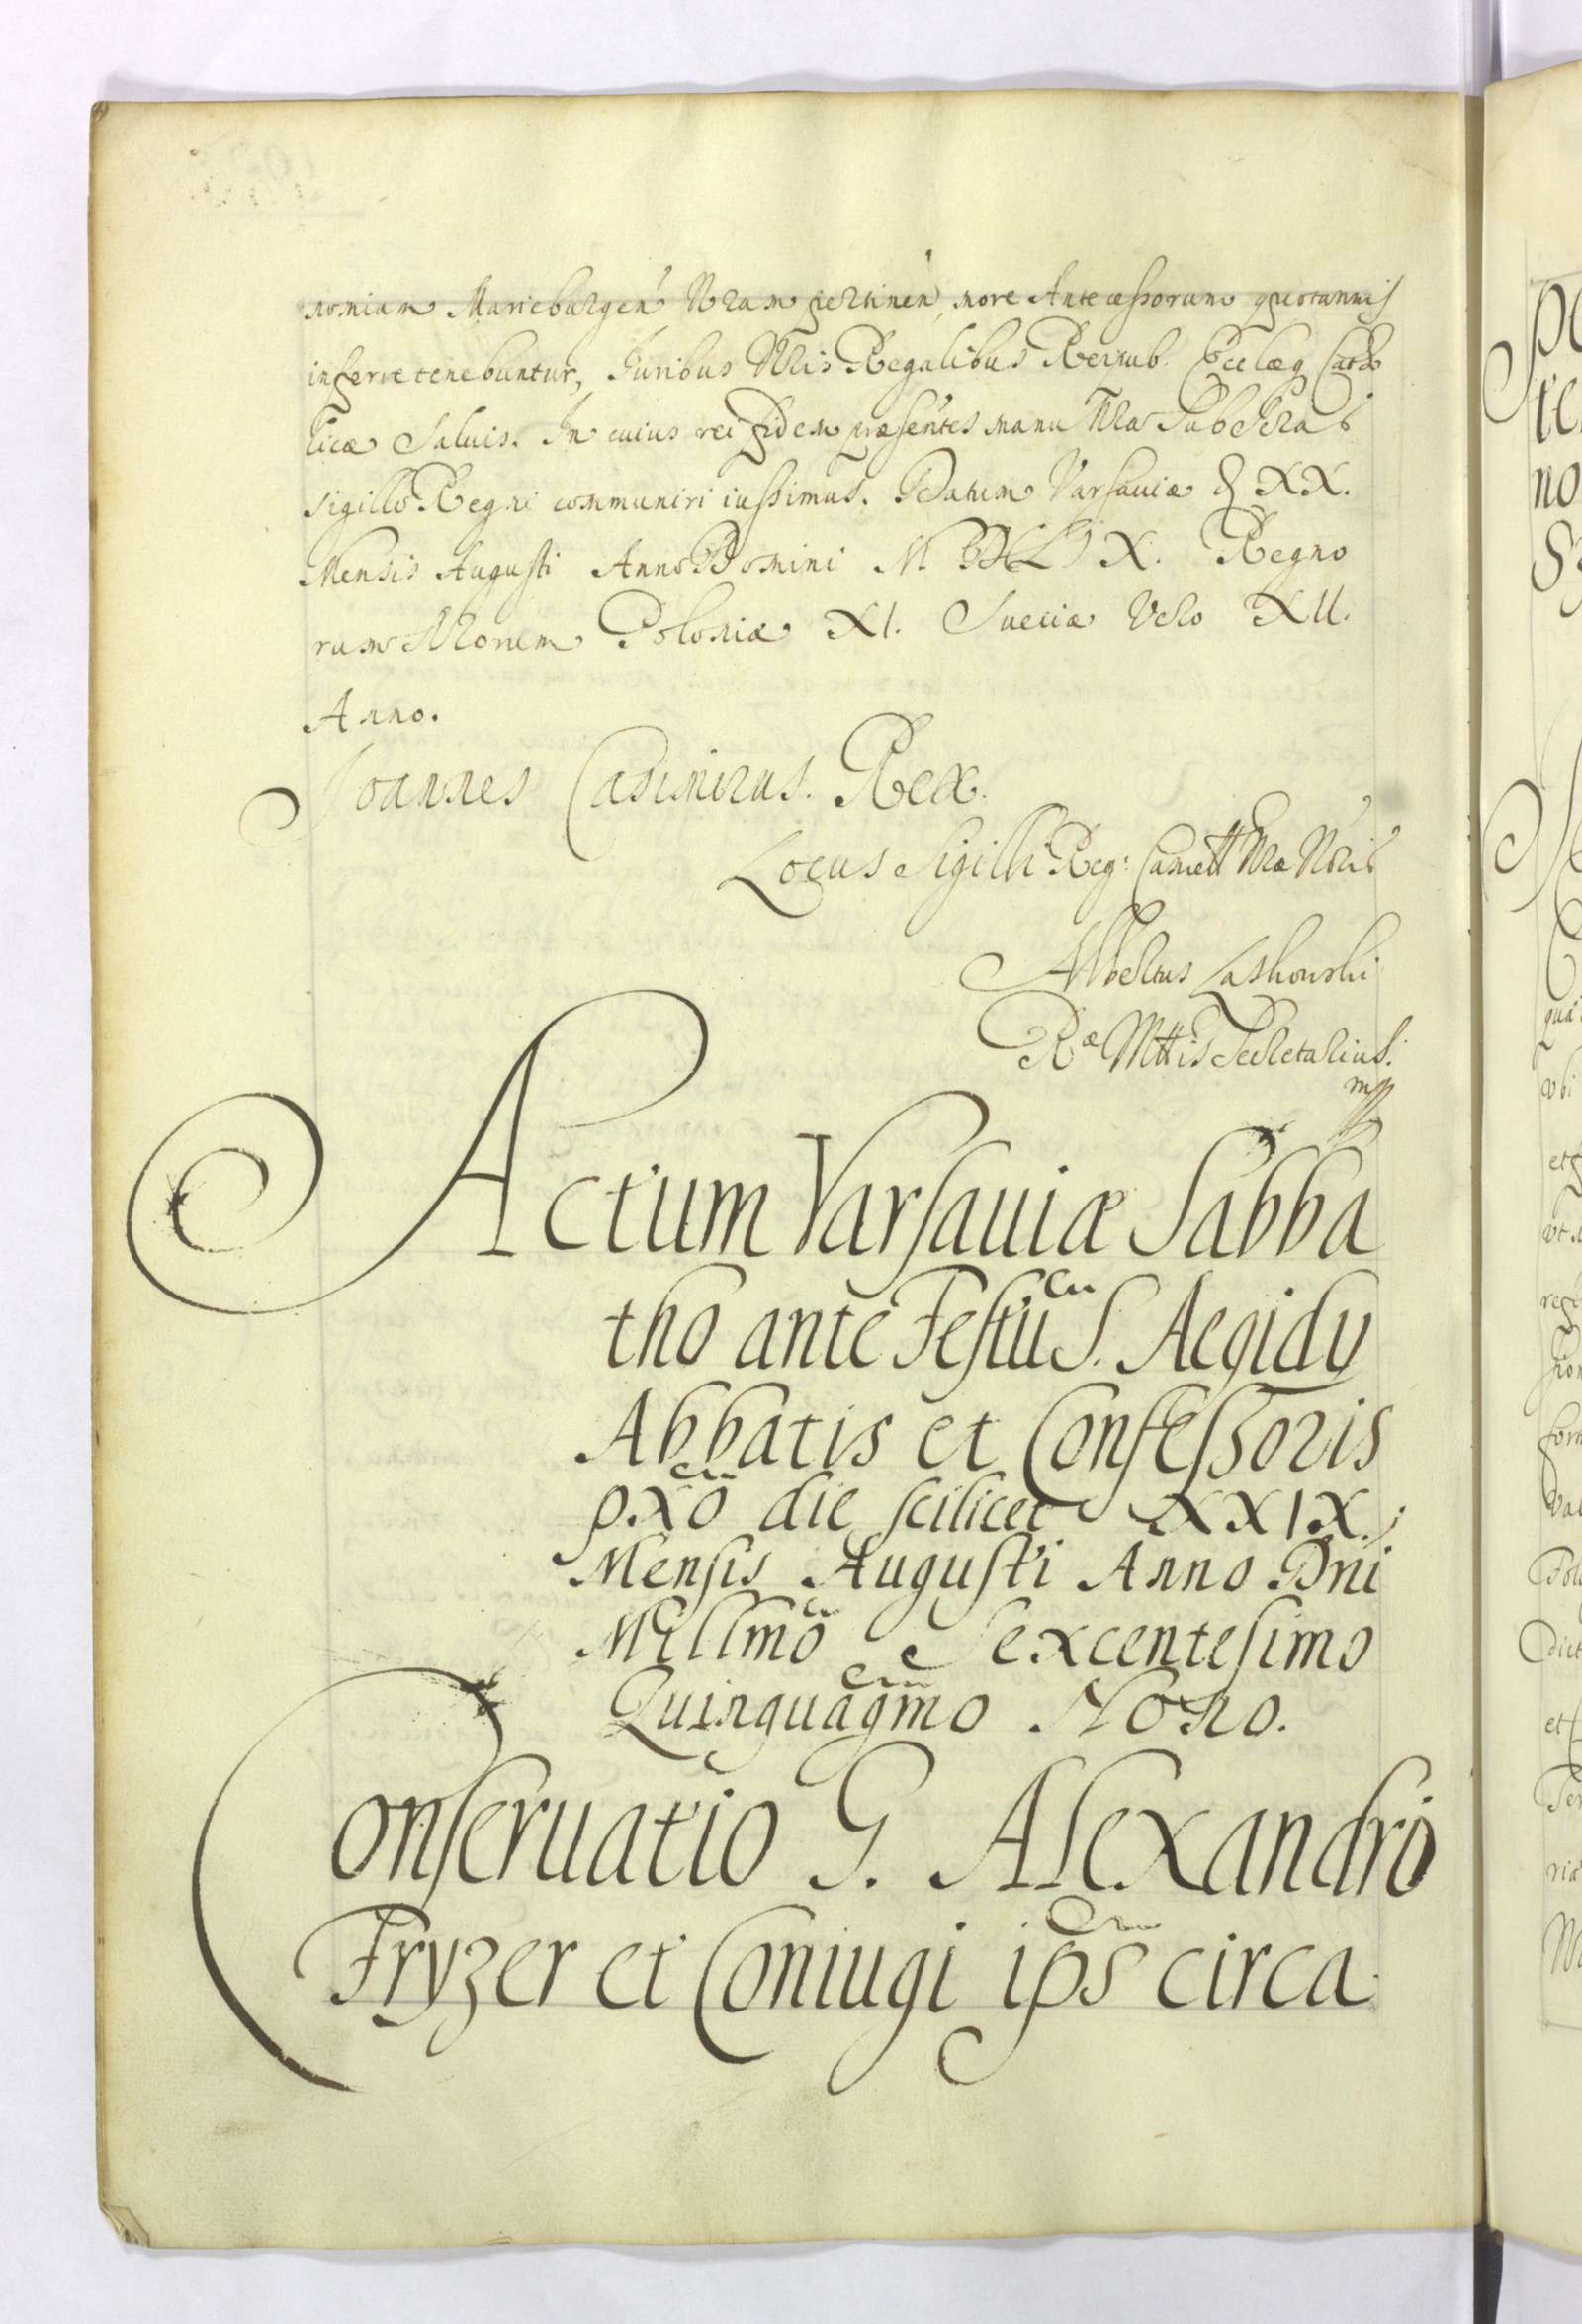 nomiam Marieburgen̄ Nr̃am pertinen̄, more Antecessorum quotannis
inferre tenebuntur, Iuribus Nr̃is Regalibus Reipub. Ecclæq Catho
licæ Saluis. In cuius rei fidem præsentes manu Nr̃a Subscrat
sigillo Regni communiri iussimus. Datum Varsauiæ D XX.
Mensis Augusti Anno Domini M. DCLIX. Regno
rum Nr̃orum Poloniæ XI. Sueciæ Vero XII.
Anno.
Joannes Casimirus. Rex.
Locus Sigilli Reg: Cancell Mr̃æ Noris
Albertus Laskowski
Ræ Mttis Secretarius.
mp
Actum Varsauiæ Sabba
tho ante Festū S. Aegidy
Abbatis et Confessoris
pxõ die scilicet XXIX.
Mensis Augusti Anno Dni
Millmõ Sexcentesimo
Quinquagm̃o Nono.
Conseruatio G. Alexandro
Fryzer et Coniugi ips̃ circa